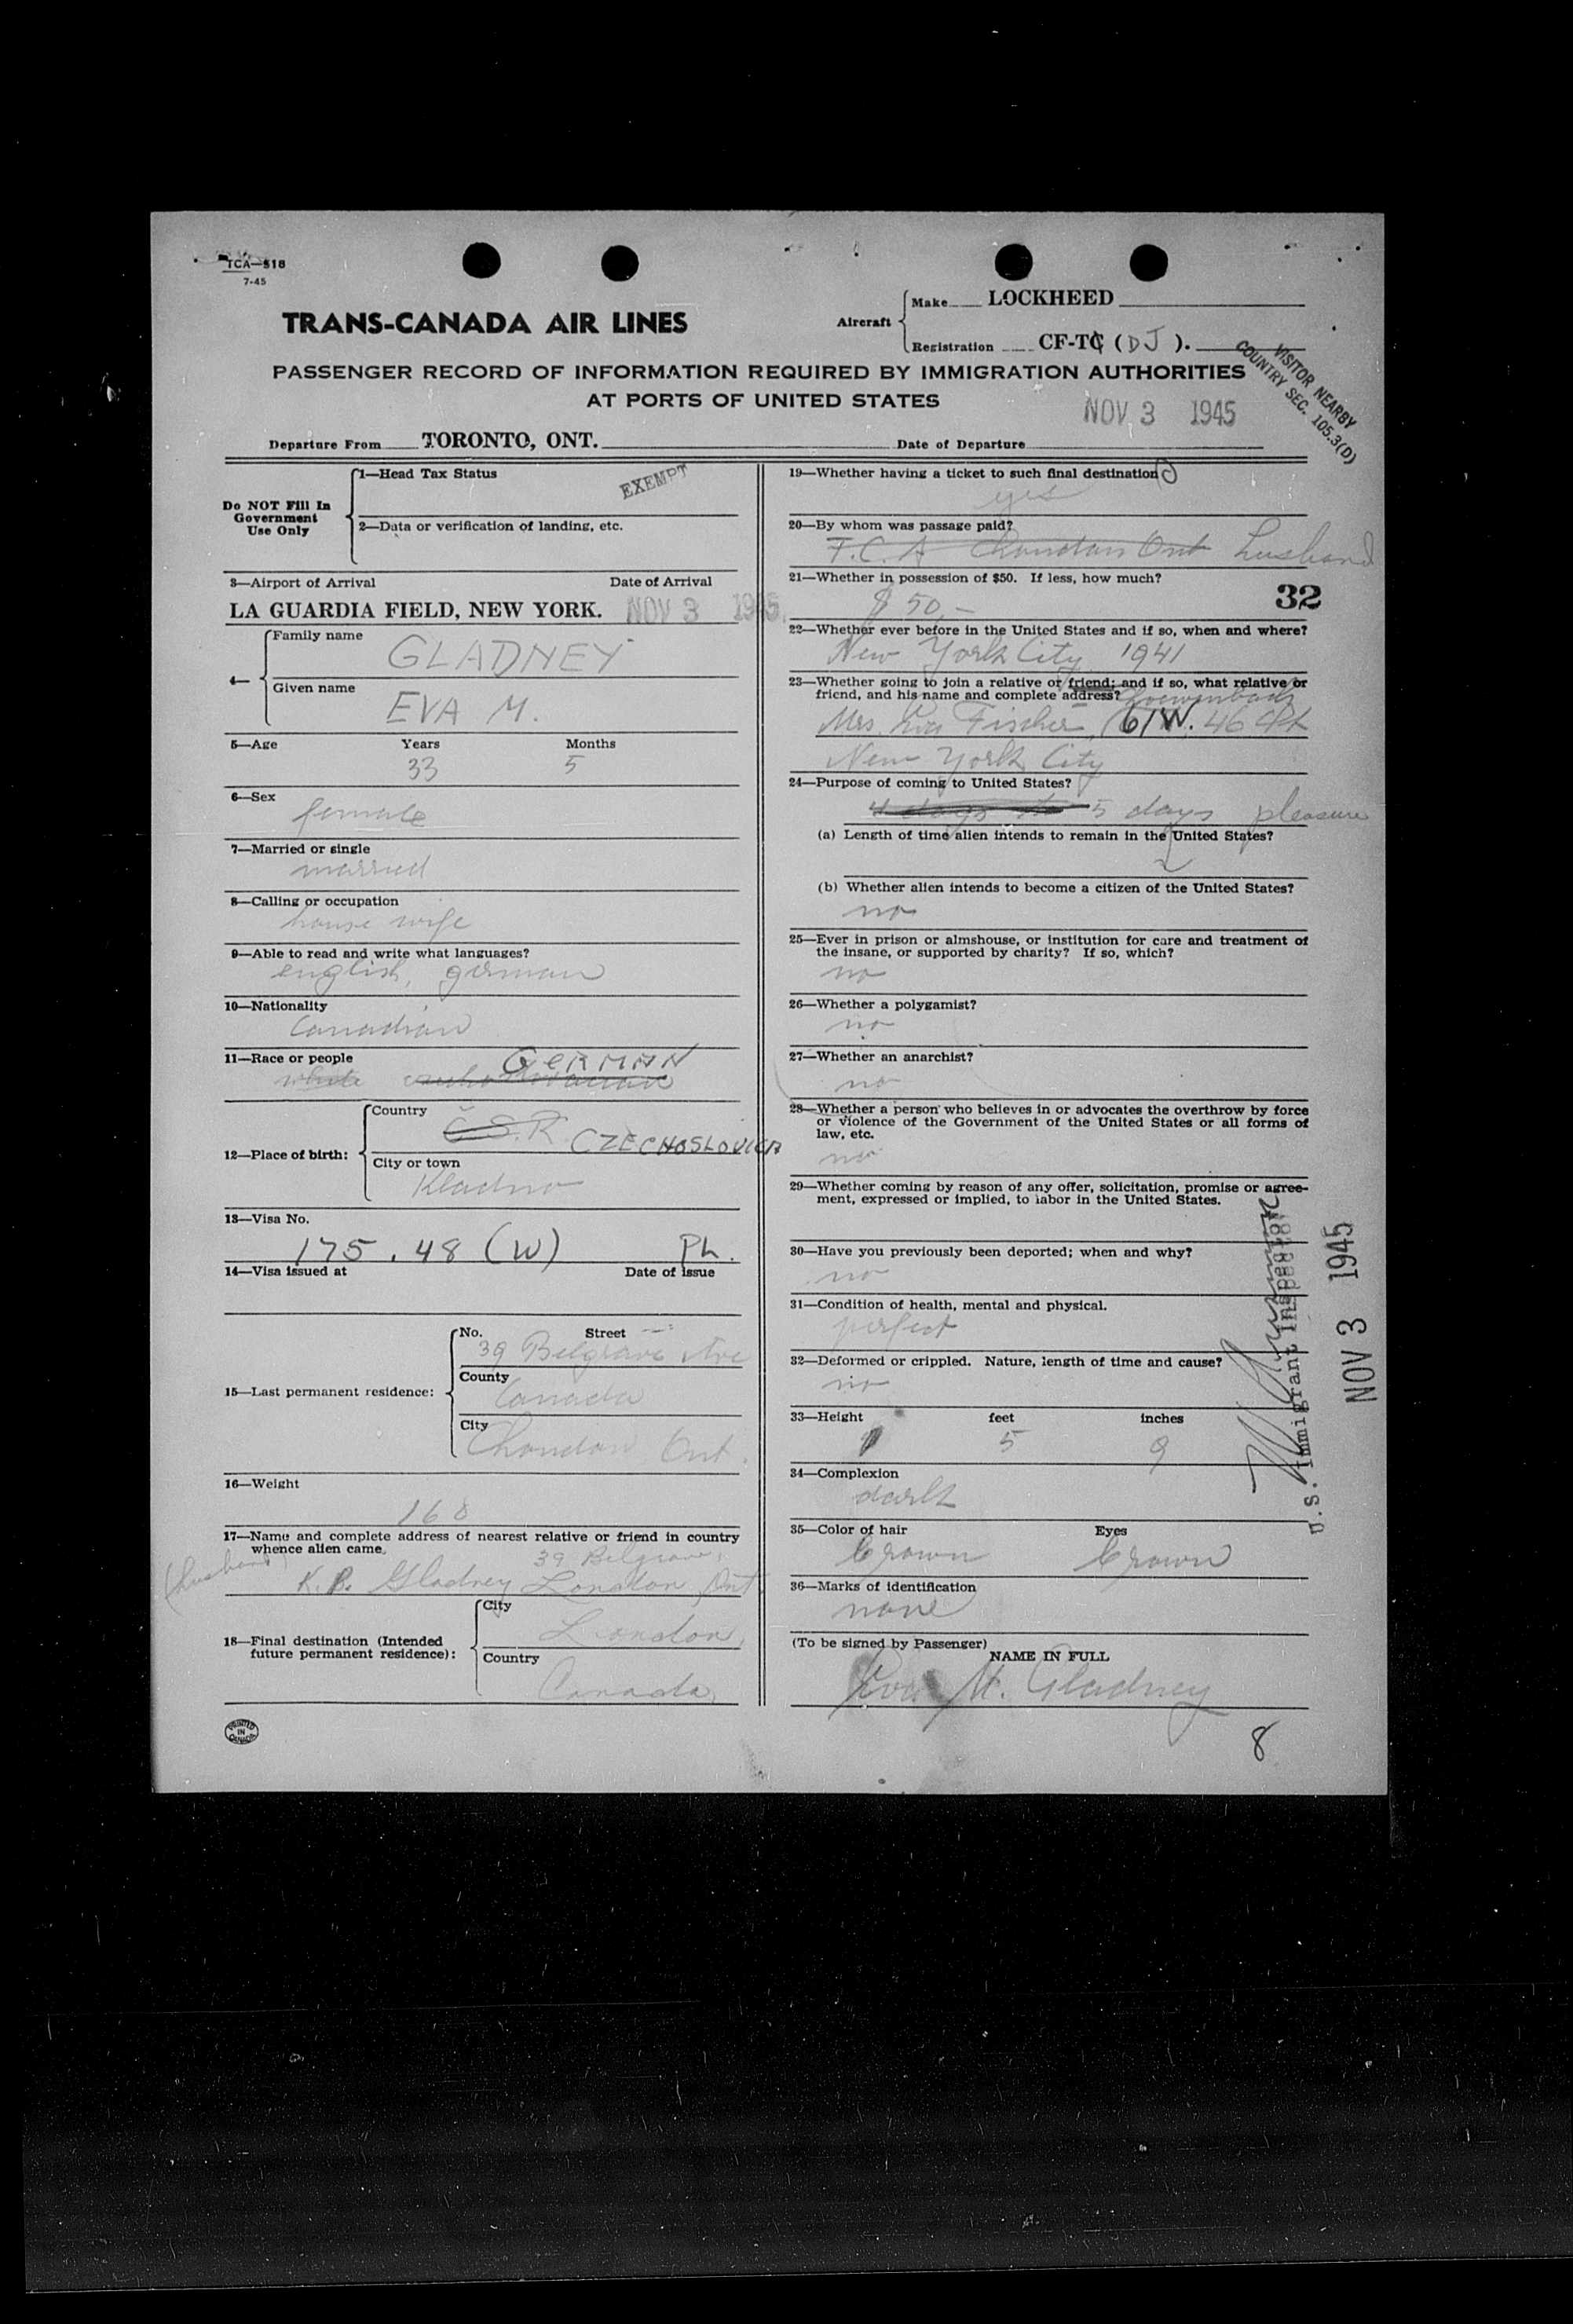 TCA—518
7-45
TRANS-CANADA AIR LINES
Aircraft
Make LOCKHEED
Registration CF-TC (DJ).
PASSENGER RECORD OF INFORMATION REQUIRED BY IMMIGRATION AUTHORITIES
AT PORTS OF UNITED STATES
NOV 3 1945
VISITOR NEARBY
COUNTRY SEC. 105.3(D)
Departure From TORONTO, ONT. Date of Departure
Do NOT Fill In
Government
Use Only
1—Head Tax Status
EXEMPT
2—Data or verification of landing, etc.
3—Airport of Arrival Date of Arrival
LA GUARDIA FIELD, NEW YORK. NOV 3 1945
4—
Family name
GLADNEY
Given name
EVA M.
5—Age Years Months
33 5
6—Sex
female
7—Married or single
married
8—Calling or occupation
house wife
9—Able to read and write what languages?
english, german
10—Nationality
Canadian
11—Race or people GERMAN
white
12—Place of birth:
Country
Č.S.R. CZECHOSLOVICA
City or town
Kladno
13—Visa No.
175.48 (W) Ph.
14—Visa issued at Date of issue
15—Last permanent residence:
No. Street
39 Belgrave Ave
County
Canada
City
London Ont.
16—Weight
168
17—Name and complete address of nearest relative or friend in country
whence alien came.
39 Belgrave,
(husband) K. P. Gladney London, Ont
18—Final destination (Intended
future permanent residence):
City
London,
Country
Canada,
19—Whether having a ticket to such final destination
yes
20—By whom was passage paid?
T.C.A London Ont husband
21—Whether in possession of $50. If less, how much?
$ 50,—
32
22—Whether ever before in the United States and if so, when and where?
New York City 1941
23—Whether going to join a relative or friend; and if so, what relative or
friend, and his name and complete address? Loewenbach
Mrs. Eva Fischer, 61 W. 46
New York City
24—Purpose of coming to United States?
4 days to 5 days pleasure
(a) Length of time alien intends to remain in the United States?
(b) Whether alien intends to become a citizen of the United States?
no
25—Ever in prison or almshouse, or institution for care and treatment of
the insane, or supported by charity? If so, which?
no
26—Whether a polygamist?
no
27—Whether an anarchist?
no
28—Whether a person who believes in or advocates the overthrow by force
or violence of the Government of the United States or all forms of
law, etc.
no
29—Whether coming by reason of any offer, solicitation, promise or agree-
ment, expressed or implied, to labor in the United States.
30—Have you previously been deported; when and why?
no
31—Condition of health, mental and physical.
perfect
32—Deformed or crippled. Nature, length of time and cause?
no
33—Height feet inches
5 9
34—Complexion
dark
35—Color of hair Eyes
brown brown
36—Marks of identification
none
(To be signed by Passenger)
NAME IN FULL
Eva M. Gladney
U.S. Immigrant Inspector
NOV 3 1945
PRINTED
IN
CANADA
8